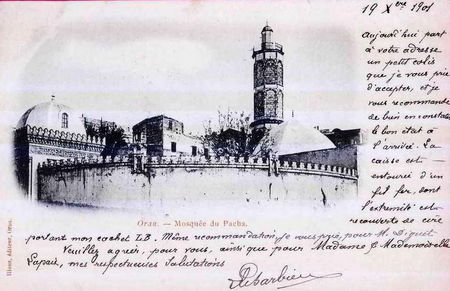 19 Xbre 1901
Aujourd'hui part
à votre adresse
un petit colis
que je vous prie
d'accepter, et je
vous recommande
de bien en constater
le bon état à
l'arrivée. La
caisse est
entourée d'un
fil fer, dont
l'extrémité est
recouverte de cire
ORAN. — Mosquée du Pacha.
portant mon cachet LB. Même recommandation, je vous prie, pour M. Diguet
Veuillez agréer, pour vous, ainsi que pour Madame & Mademoiselle
mes respectueuses salutations
Éditeur, Oran.